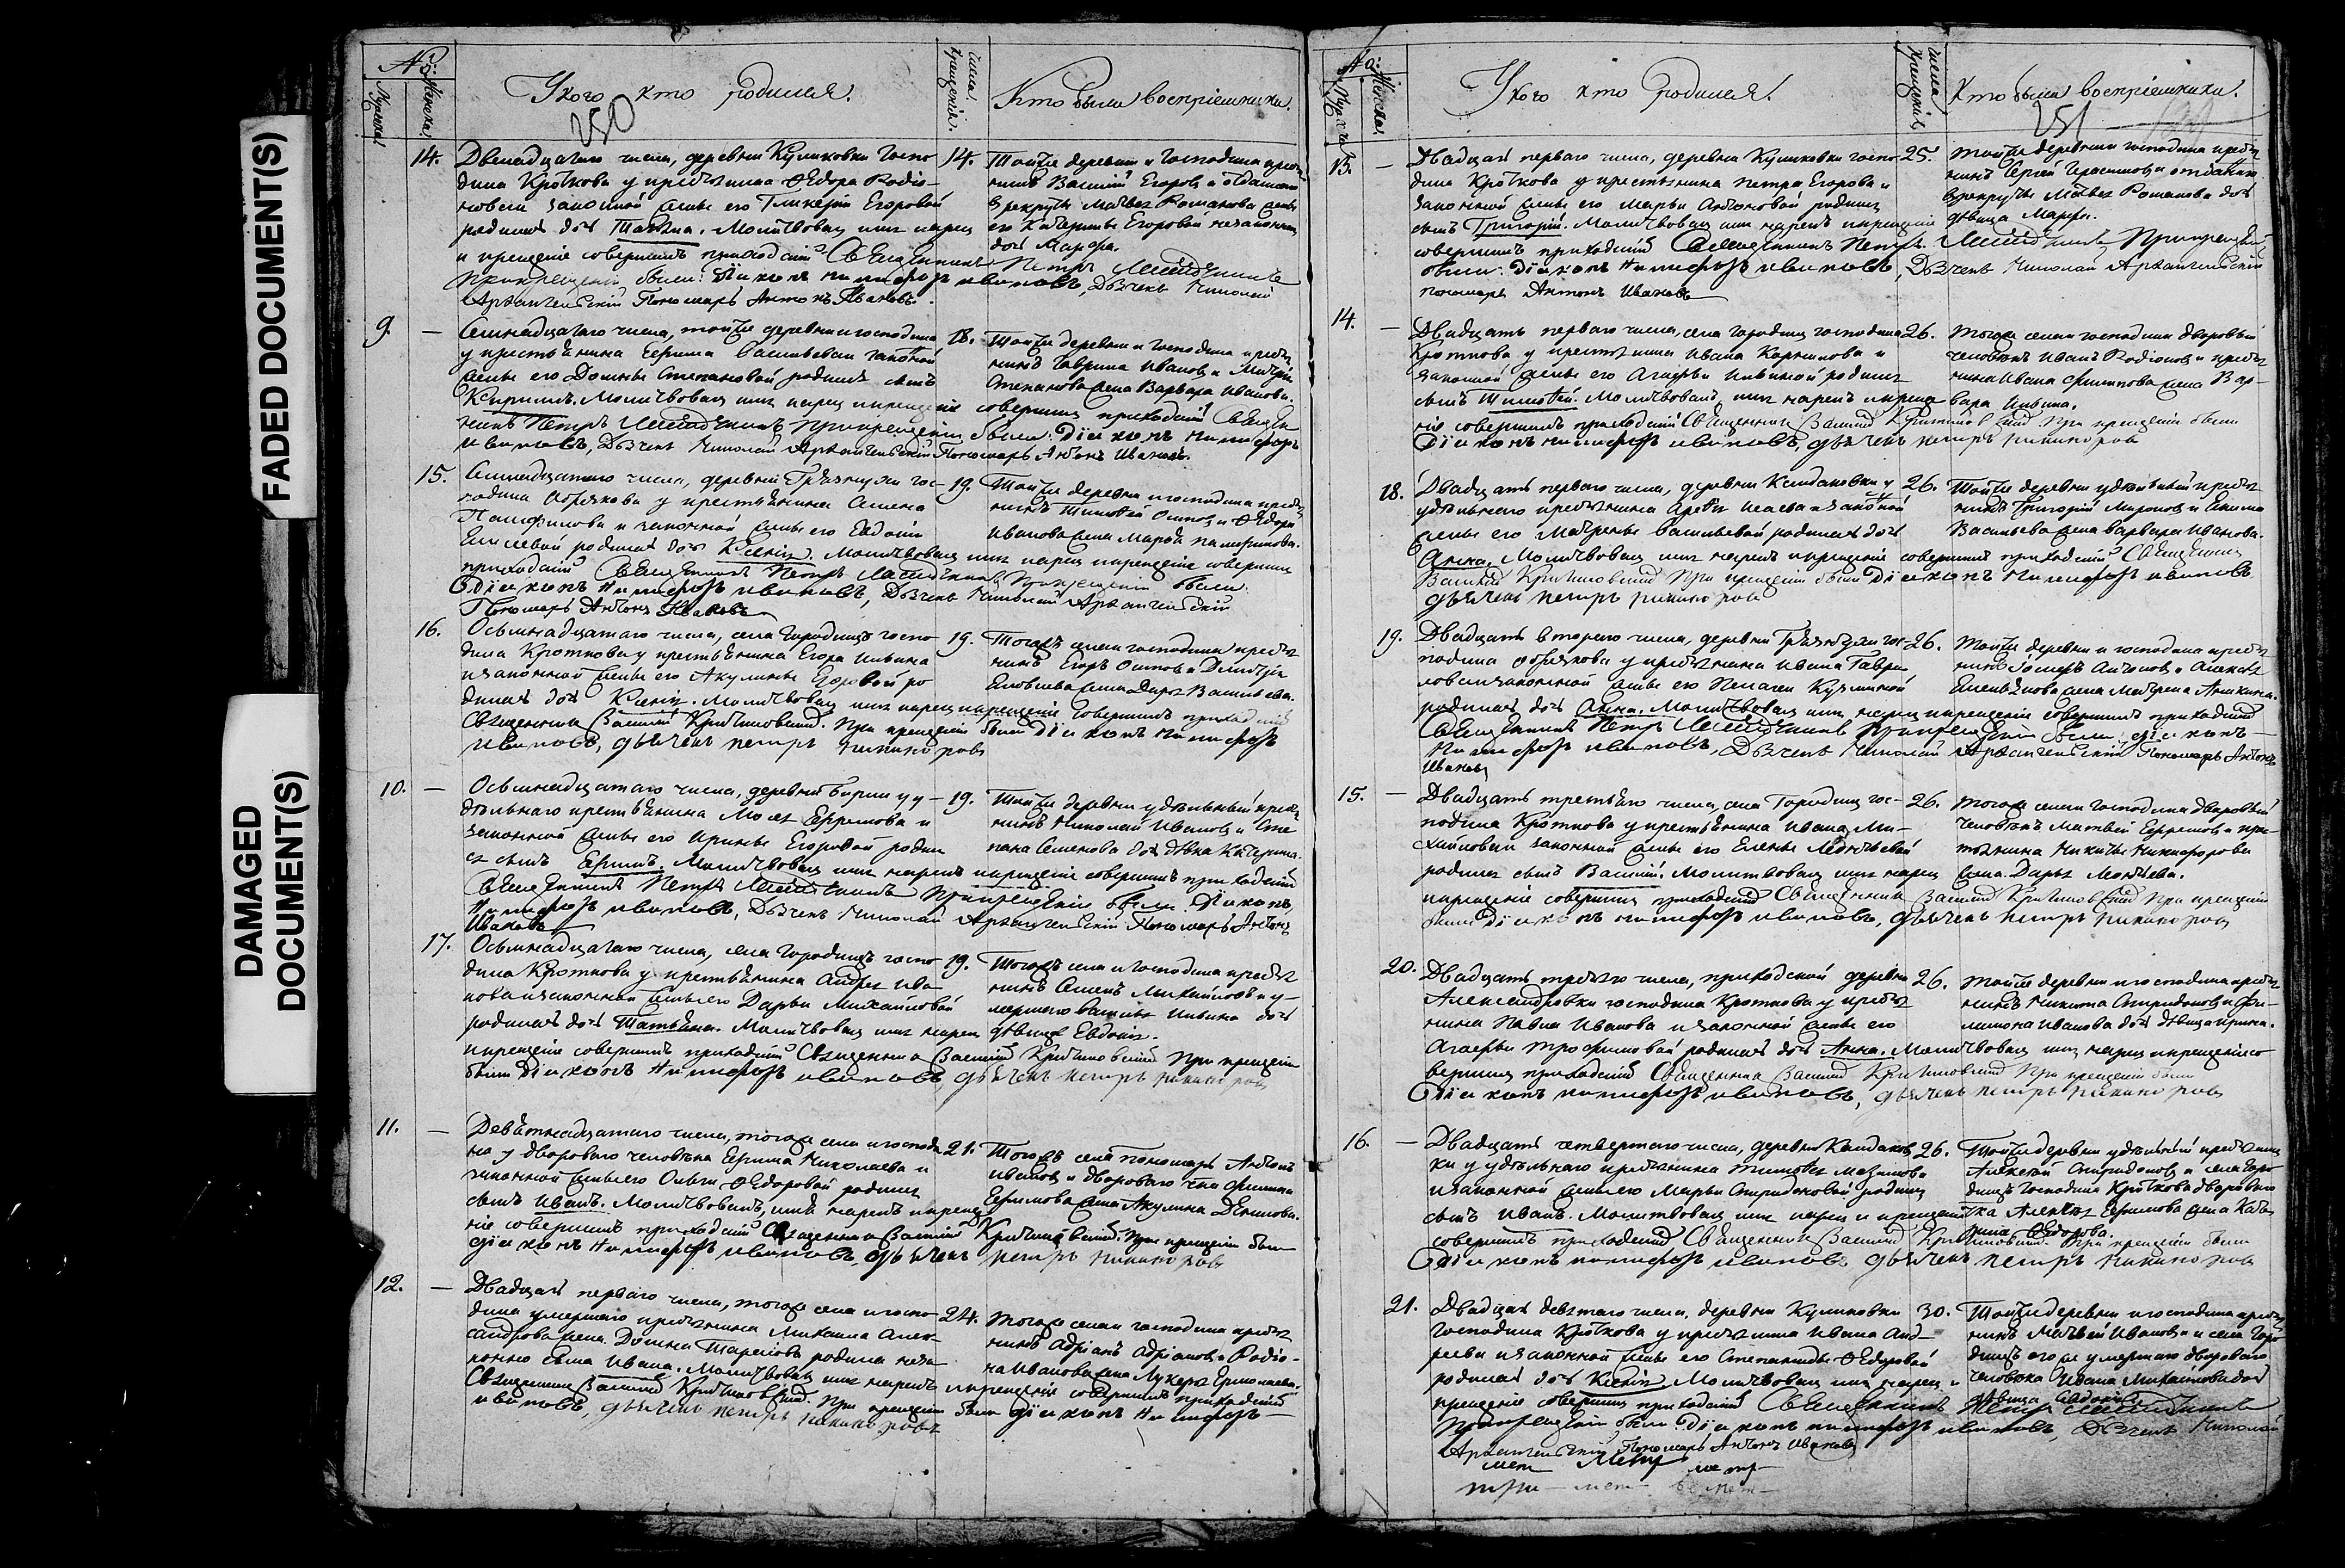 FADED DOCUMENT(S)
DAMAGED
DOCUMENT(S)
№:
Мужска
Женска.
У кого кто родился.
числа
крещенія.
Кто были воспріемники.
250
14. Двенадцатаго числа, деревни Куликовки Госпо
дина Кроткова у крестьянина Ѳедора Родіо-
нова и законной жены его Гликеріи Егоровой
родилась дочь Татьяна. Молитвовалъ имя нарекъ
и крещеніе совершилъ приходскій Священникъ Петръ
При крещеніи были: Діаконъ Никифоръ Ивановъ, Дьячекъ Николай
Архангельскій Пономарь Антонъ Ивановъ.
14. Тойже деревни и Господина кресть
нинъ Василій Егоровъ и отданнаго
в рекруты Матвея Романова жены
его Катерины Егоровой незаконная
дочь Марфа.
9. — Семнадцатаго числа, тойже деревни и господина
у крестьянина Ефима Васильева и законной
жены его Домны Степановой родился сынъ
Кирилъ. Молитвовалъ имя нарекъ и крещеніе совершилъ приходскій Священ
никъ Петръ При крещеніи были: Діаконъ Никифоръ
Ивановъ, Дьячекъ Николай Архангельскій Пономарь Антонъ Ивановъ.
18. Тойже деревни и Господина кресть
нинъ Гаврила Ивановъ и Дмитрія
Степанова жена Варвара Иванова.
15. Семнадцатаго числа, деревни Грязнухи гос-
подина Обрязкова у крестьянина Семена
Панфилова и законной жены его Евдокіи
родилась дочь Ксенія. Молитвовалъ имя нарекъ и крещеніе совершилъ
приходскій Священникъ Петръ При крещеніи были:
Діаконъ Никифоръ Ивановъ, Дьячекъ Николай Архангельскій
Пономарь Антонъ Ивановъ
19. Тойже деревни и господина кресть
нинъ Тимофей Осиповъ и Ѳедора
Иванова жена Марья Панфилова.
16. Осьмнадцатаго числа, села Городищъ госпо
дина Кроткова у крестьянина Егора Ильина
и законной жены его Акулины Егоровой ро
дилась дочь Ксенія. Молитвовалъ имя нарекъ и крещеніе совершилъ приходскій
Священникъ Василій При крещеніи были Діаконъ Никифоръ
Ивановъ, дьячекъ петръ никиноровъ
19. Тогожъ села и господина кресть
нинъ Егоръ Осиповъ и Дмитрія
жена Дарья Васильева.
10. — Осьмнадцатаго числа, деревни у у-
дельнаго крестьянина Мосея Ефремова и
законной жены его Ирины Егоровой родил
ся сынъ Ефимъ. Молитвовалъ имя нарекъ и крещеніе совершилъ приходскій
Священникъ Петръ При крещеніи были: Діаконъ
Никифоръ Ивановъ, Дьячекъ Николай Архангельскій Пономарь Антонъ
Ивановъ
19. Тойже деревни удельный кресть
нинъ Николай Ивановъ и Сте
пана Семенова дочь девка Катерина.
17. Осьмнадцатаго числа, села Городищъ госпо
дина Кроткова у крестьянина Андрея Ива
нова и законной жены его Дарьи Михайловой
родилась дочь Татьяна. Молитвовалъ имя нарекъ
и крещеніе совершилъ приходскій Священникъ Василій При крещеніи
были Діаконъ Никифоръ Ивановъ, дьячекъ петръ никиноровъ
19. Тогожъ села и Господина кресть
нинъ Семенъ Михайловъ и у-
мершаго Василья Ильина дочь
девица Евдокія.
11. — Девятнадцатаго числа, тогоже села и господи
на у двороваго человека Ефима Николаева и
законной жены его Ольги Ѳедоровой родился
сынъ Иванъ. Молитвовалъ, имя нарекъ и креще
ніе совершилъ приходскій Священникъ Василій При крещеніи были
діаконъ Никифоръ Ивановъ, дьячекъ петръ никиноровъ
21. Тогожъ села пономарь Антонъ
Ивановъ и двороваго
Ефимова жена Акулина Денисова.
12. — Двадцать перваго числа, тогоже села и госпо
дина умершаго крестьянина Михаила Алек-
сандрова жена Домна родила неза
конно сына Ивана. Молитвовалъ имя нарекъ и крещеніе совершилъ приходскій
Священникъ Василій При крещеніи были діаконъ Никифоръ
Ивановъ, дьячекъ петръ никиноровъ
24. Тогоже села и господина кресть
нинъ Адріанъ Адріановъ и Родіо-
на Иванова жена Лукерья Ермолаева.
№:
Женска.
У кого кто родился.
числа
крещенія
Кто были воспріемники.
251
13. — Двадцать перваго числа, деревни Куликовки госпо
дина Кроткова у крестьянина Петра Егорова и
законной жены его Марьи Антоновой родился
сынъ Григорій. Молитвовалъ имя нарекъ и крещеніе
совершилъ приходскій Священникъ Петръ При крещеніи
были: Діаконъ Никифоръ Ивановъ, Дьячекъ Николай Архангельскій
пономарь Антонъ Ивановъ
25. Тойже деревни и господина кресть
нинъ Сергей Герасимовъ и отданнаго
в рекруты Матвея Романова дочь
девица Марфа.
14. — Двадцать перваго числа, села Городищъ господина
Кроткова у крестьянина Ивана и
законной жены его Агафьи Ильиной родился
сынъ Тимофей. Молитвовалъ, имя нарекъ и креще
ніе совершилъ приходскій Священникъ Василій При крещеніи были
Діаконъ Никифоръ Ивановъ, дьячекъ петръ никиноровъ
26. Тогоже села и господина дворовый
человекъ Иванъ Родіоновъ и кресть
нина Ивана Филипова жена Вар-
вара Ильина.
18. Двадцать перваго числа, деревни у
удельнаго крестьянина Исаева и законной
жены его Матрены Васильевой родилась дочь
Анна. Молитвовалъ имя нарекъ и крещеніе совершилъ приходскій Священникъ
Василій При крещеніи были Діаконъ Никифоръ Ивановъ
дьячекъ петръ никиноровъ
26. Тойже деревни удельный кресть
нинъ Григорій Мироновъ и
Васильева жена Варвара Иванова.
19. Двадцать втораго числа, деревни Грязнухи гос-
подина Обрязкова у крестьянина Ивана Гаври
лова и законной жены его Пелагеи Кузминой
родилась дочь Анна. Молитвовалъ имя нарекъ и крещеніе совершилъ приходскій
Священникъ Петръ При крещеніи были: діаконъ
Никифоръ Ивановъ, Дьячекъ Николай Архангельскій Пономарь Антонъ
Ивановъ
26. Тойже деревни и господина кресть
нинъ Антоновъ и Алексея
Емельянова жена Матрена Аникина.
15. — Двадцать третьяго числа, села Городищъ гос-
подина Кроткова у крестьянина Ивана Ми-
хайлова и законной жены его Елены Леонтьевой
родился сынъ Василій. Молитвовалъ имя нарекъ
и крещеніе совершилъ приходскій Священникъ Василій При крещеніи
были Діаконъ Никифоръ Ивановъ, дьячекъ петръ никиноровъ
26. Тогоже села и господина дворовый
человекъ Матвей Ефремовъ и кре-
стьянина Никиты Никифорова
жена Дарья
20. Двадцать третьяго числа, приходской деревни
Александровки господина Кроткова у кресть
нина Павла Иванова и законной жены его
Агафьи Трофимовой родилась дочь Анна. Молитвовалъ имя нарекъ и крещеніе со
вершилъ приходскій Священникъ Василій При крещеніи были
Діаконъ никифоръ Ивановъ, дьячекъ петръ никиноровъ
26. Тойже деревни и господина кресть
нинъ Никита Спиридоновъ и Фи-
лимона Иванова дочь девица Ирина.
16. — Двадцать четвертаго числа, деревни
ки у удельнаго крестьянина Тимофея
и законной жены его Марьи Спиридоновой родился
сынъ Иванъ. Молитвовалъ имя нарекъ и крещеніе
совершилъ приходскій Священникъ Василій При крещеніи были
Діаконъ никифоръ Ивановъ дьячекъ петръ никиноровъ
26. Тойже деревни удельный крестьянинъ
Алексей Спиридоновъ и села Горо-
дищъ господина Кроткова двороваго
Алексея Ефимова жена Кате
рина Ѳедорова.
21. Двадцать девятаго числа, деревни Куликовки
Господина Кроткова у крестьянина Ивана Анд-
реева и законной жены его Степаниды Ѳедоровой
родилась дочь Ксенія. Молитвовалъ имя нарекъ и
крещеніе совершилъ приходскій Священникъ Петръ
При крещеніи были: Діаконъ никифоръ Ивановъ, Дьячекъ Николай
Архангельскій Пономарь Антонъ Ивановъ
30. Тойже деревни и господина кресть
нинъ Матвей Ивановъ и села Горо-
дищъ умершаго двороваго
человека Ивана Михайлова дочь
девица Евдокія